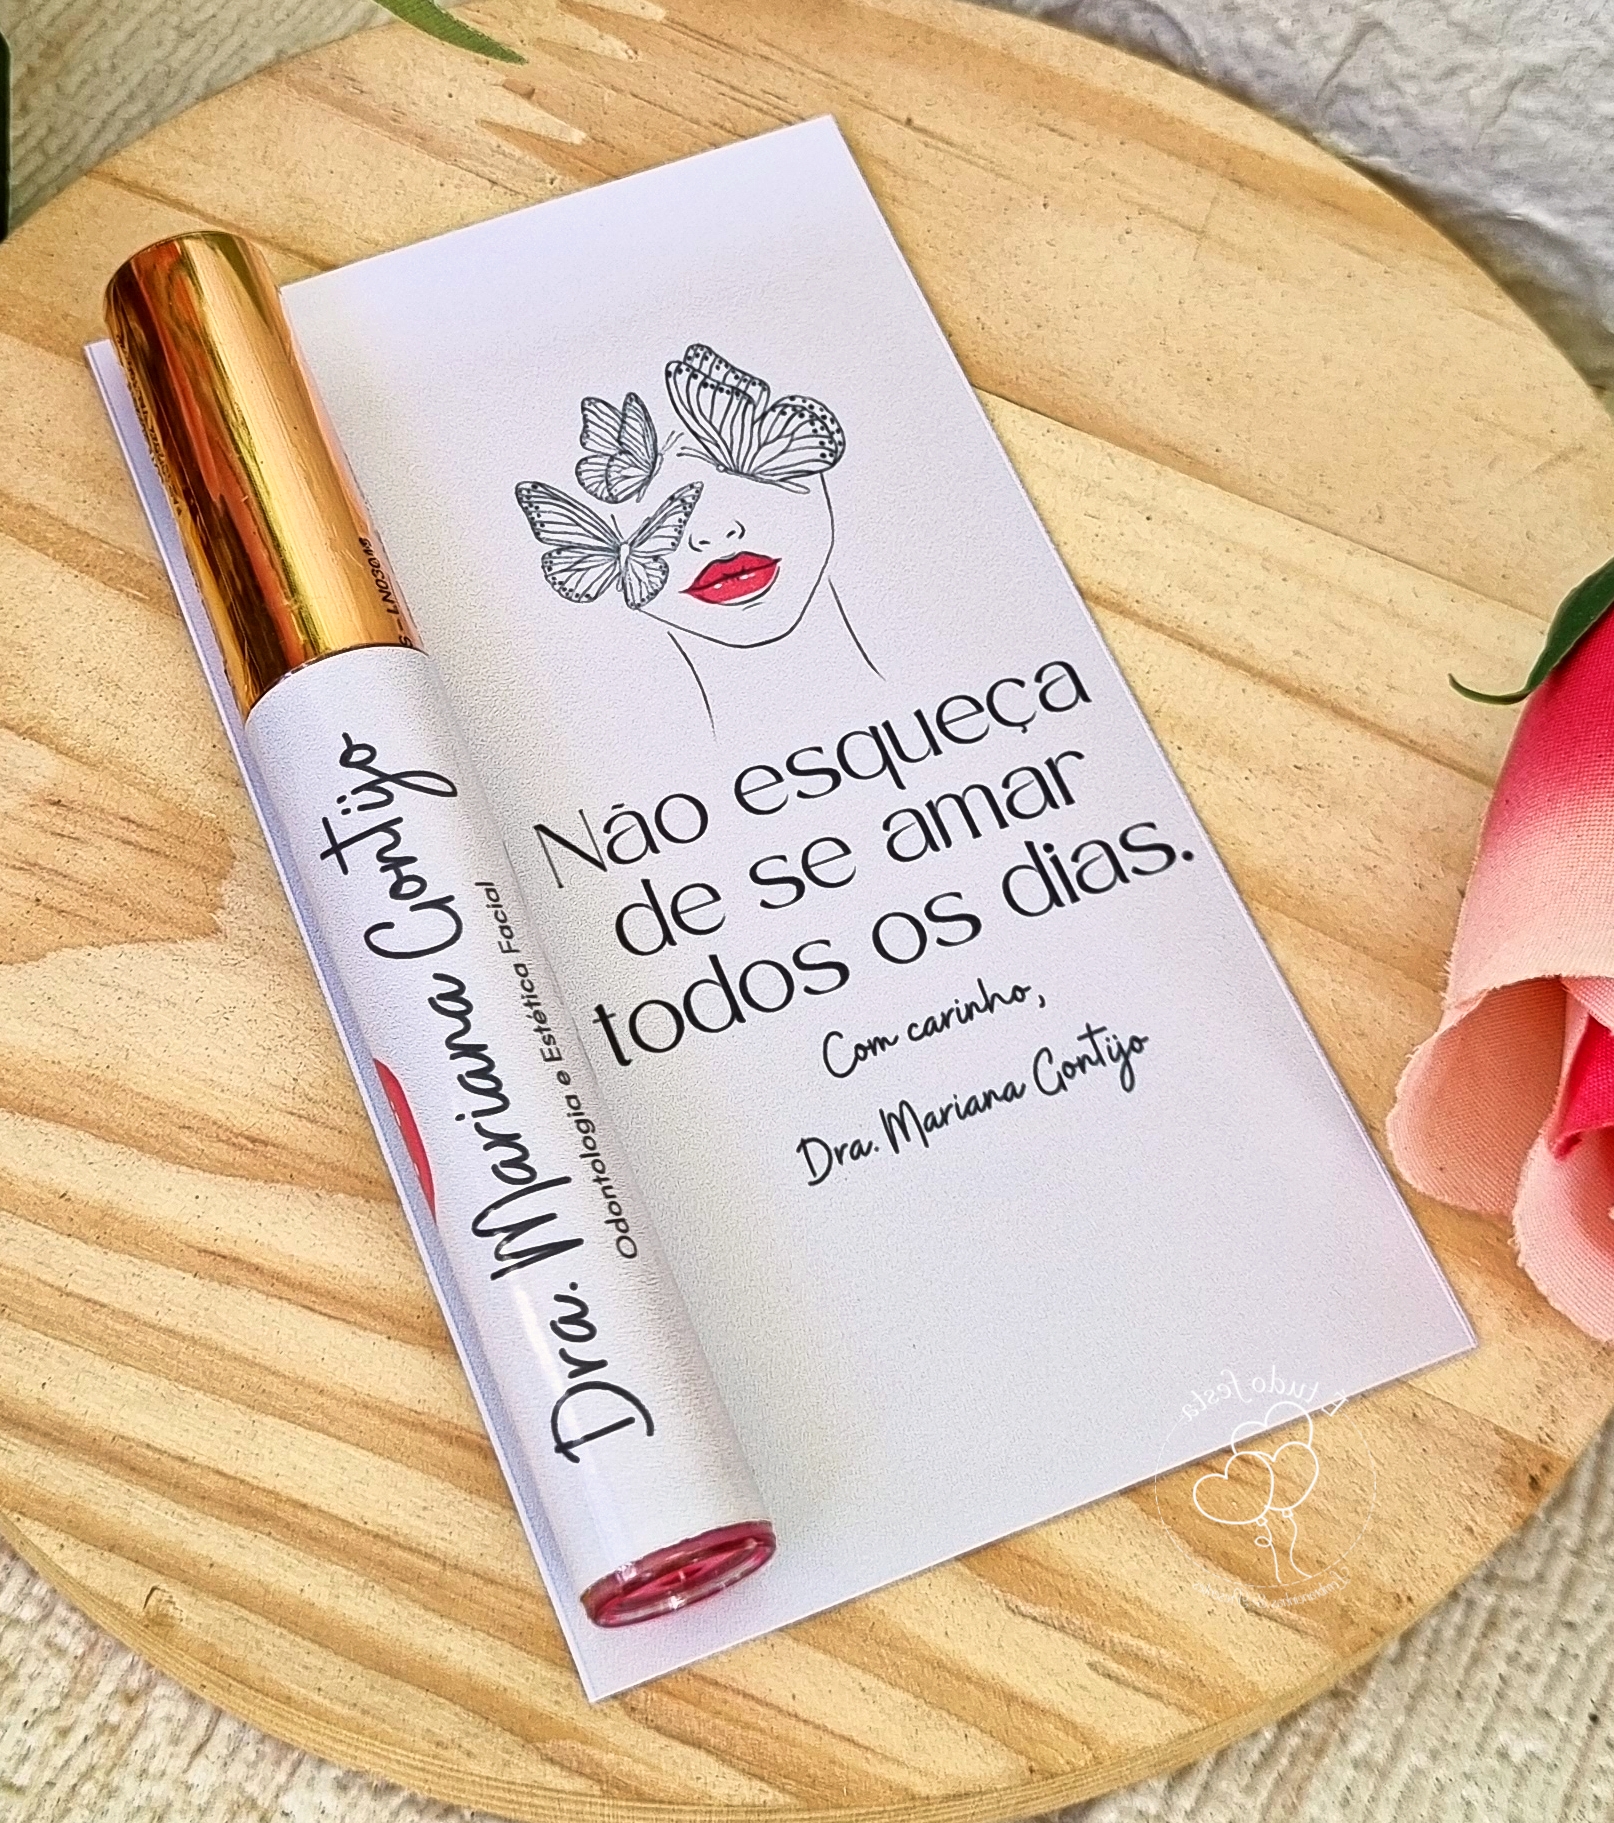 Não esqueça
de se amar
todos os dias.
Com carinho,
Dra. Mariana Gontijo
Dra. Mariana Gontijo
Odontologia e Estética Facial
LN03018
tudo festa